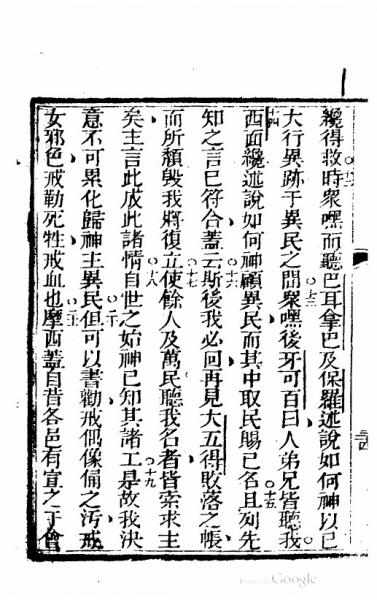 纔得救時眾嘿而聽巴耳拿巴及保羅述說如何神以己
大行異跡于異民之間○十三眾嘿後牙可百曰人弟兄皆聽我
○十四西面纔述說如何神顧異民而其中取民賜己名○十五且列先
知之言已符合蓋云○十六斯後我必回再見大五得敗落之帳
而所頹毀我將復立○十七使餘人及萬民聽我名者皆索求主
矣主言此成此諸情○十八自世之始神已知其諸工○十九是故我決
意不可累化歸神主異民○二十但可以書勸戒偶像俑之汚戒
女邪色戒勒死牲戒血也○二一摩西蓋自昔各邑有宣之于會
Google